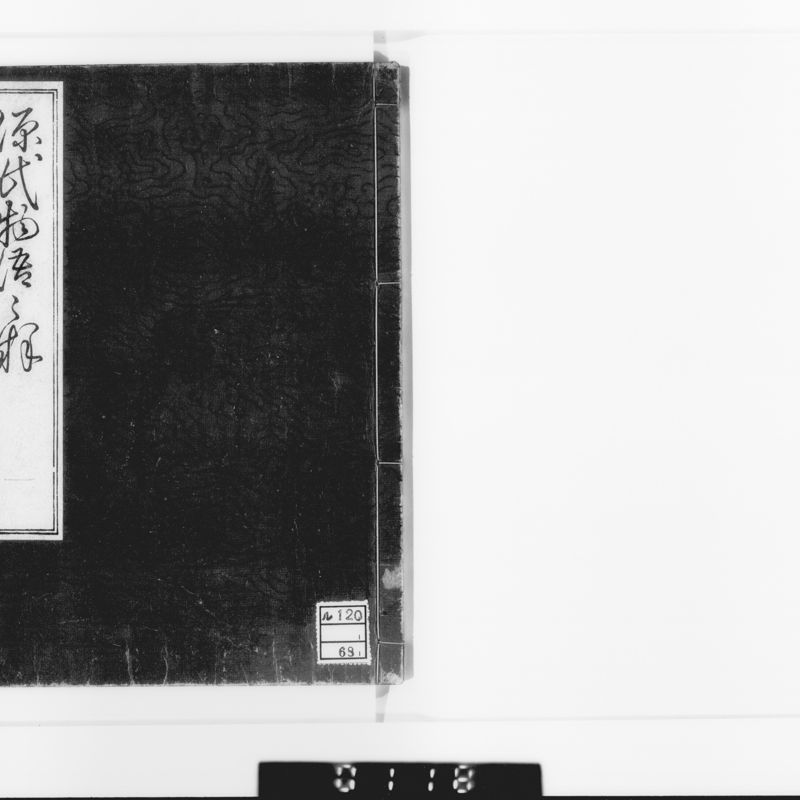 源氏物語之釋
ル 120
1
68 1
0118